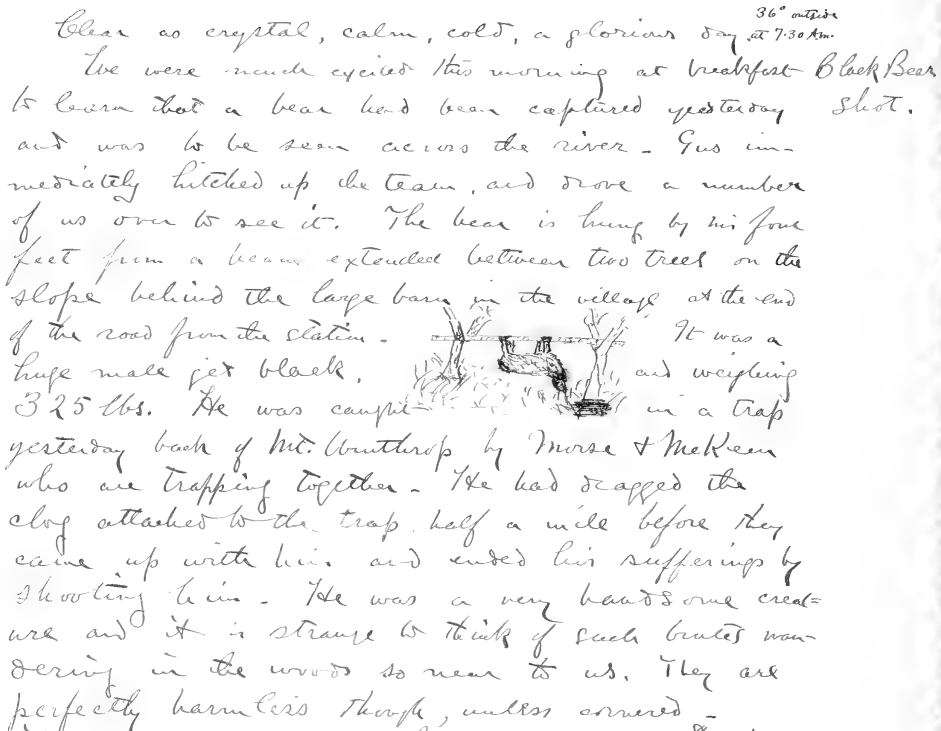 36° outside
Clear as crystal, calm, cold, a glorious day. at 7.30 A.m.
We were much excited this morning at breakfast Black Bear
to learn that a bear had been captured yesterday shot.
and was to be seen across the river - Gus im-
mediately hitched up the team, and drove a number
of us over to see it. The bear is hung by his four
feet from a beam extended between two trees on the
slope behind the large barn in the village at the end
of the road from the station - It was a
huge male jet black, and weighing
325 lbs. He was caught in a trap
yesterday back of Mt. Winthrop by Morse & McKeen
who are trapping together - He had dragged the
clog attached to the trap half a mile before they
came up with him and ended his sufferings by
shooting him - He was a very handsome creat=
ure and it is strange to think of such brutes wan-
dering in the woods so near to us. They are
perfectly harmless though, unless cornered -